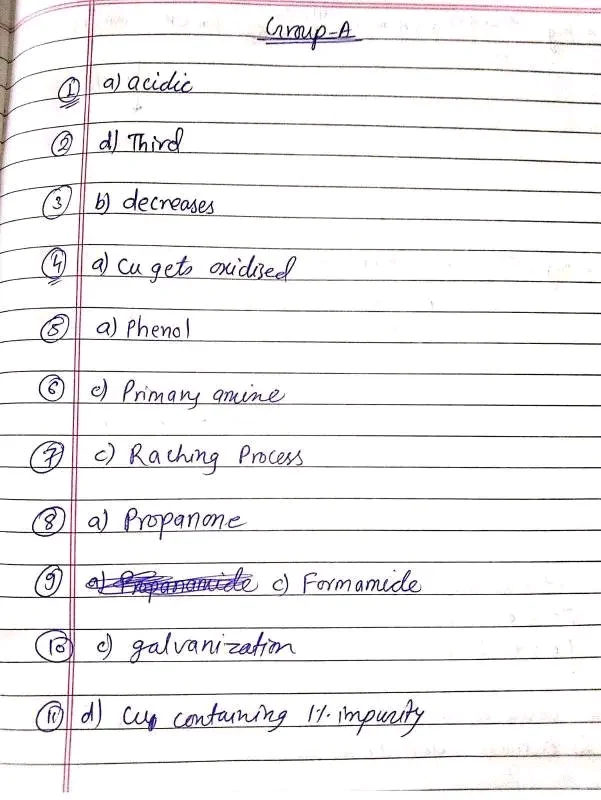 Group-A
1 a) acidic
2 d) Third
3 b) decreases
4 a) Cu gets oxidized
5 a) Phenol
6 c) Primary amine
7 c) Raching Process
8 a) Propanone
9 a) Propanamide c) Formamide
10 c) galvanization
11 d) Cu containing 1% impurity